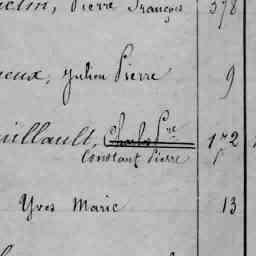 Pierre François 378
Julien Pierre 9
uillault, Charles Pre 172
Constant Pierre
Yves Marie 13